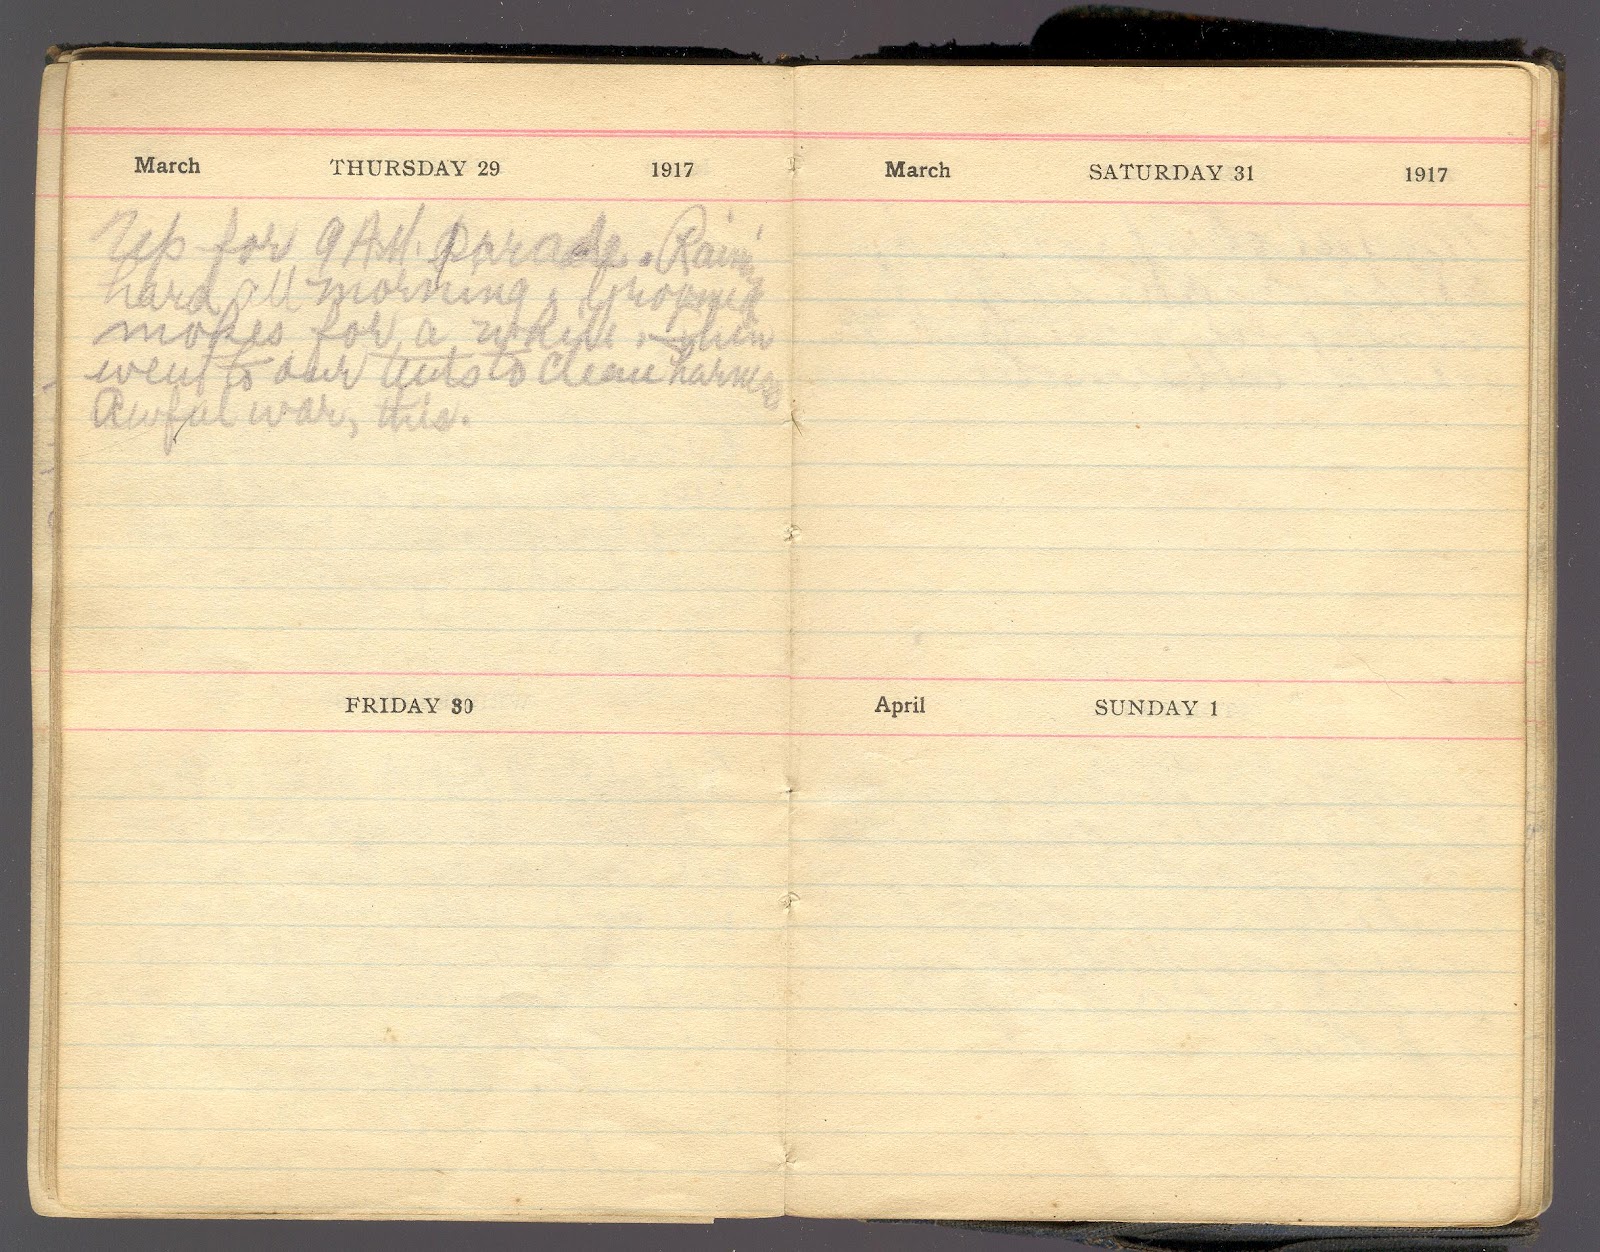 March THURSDAY 29 1917
Up for 9 A.M. parade. Rain
hard all morning. Groomed
mokes for a while, then
went to our tents to clean harness
Awful war, this.
FRIDAY 30
March SATURDAY 31 1917
April SUNDAY 1